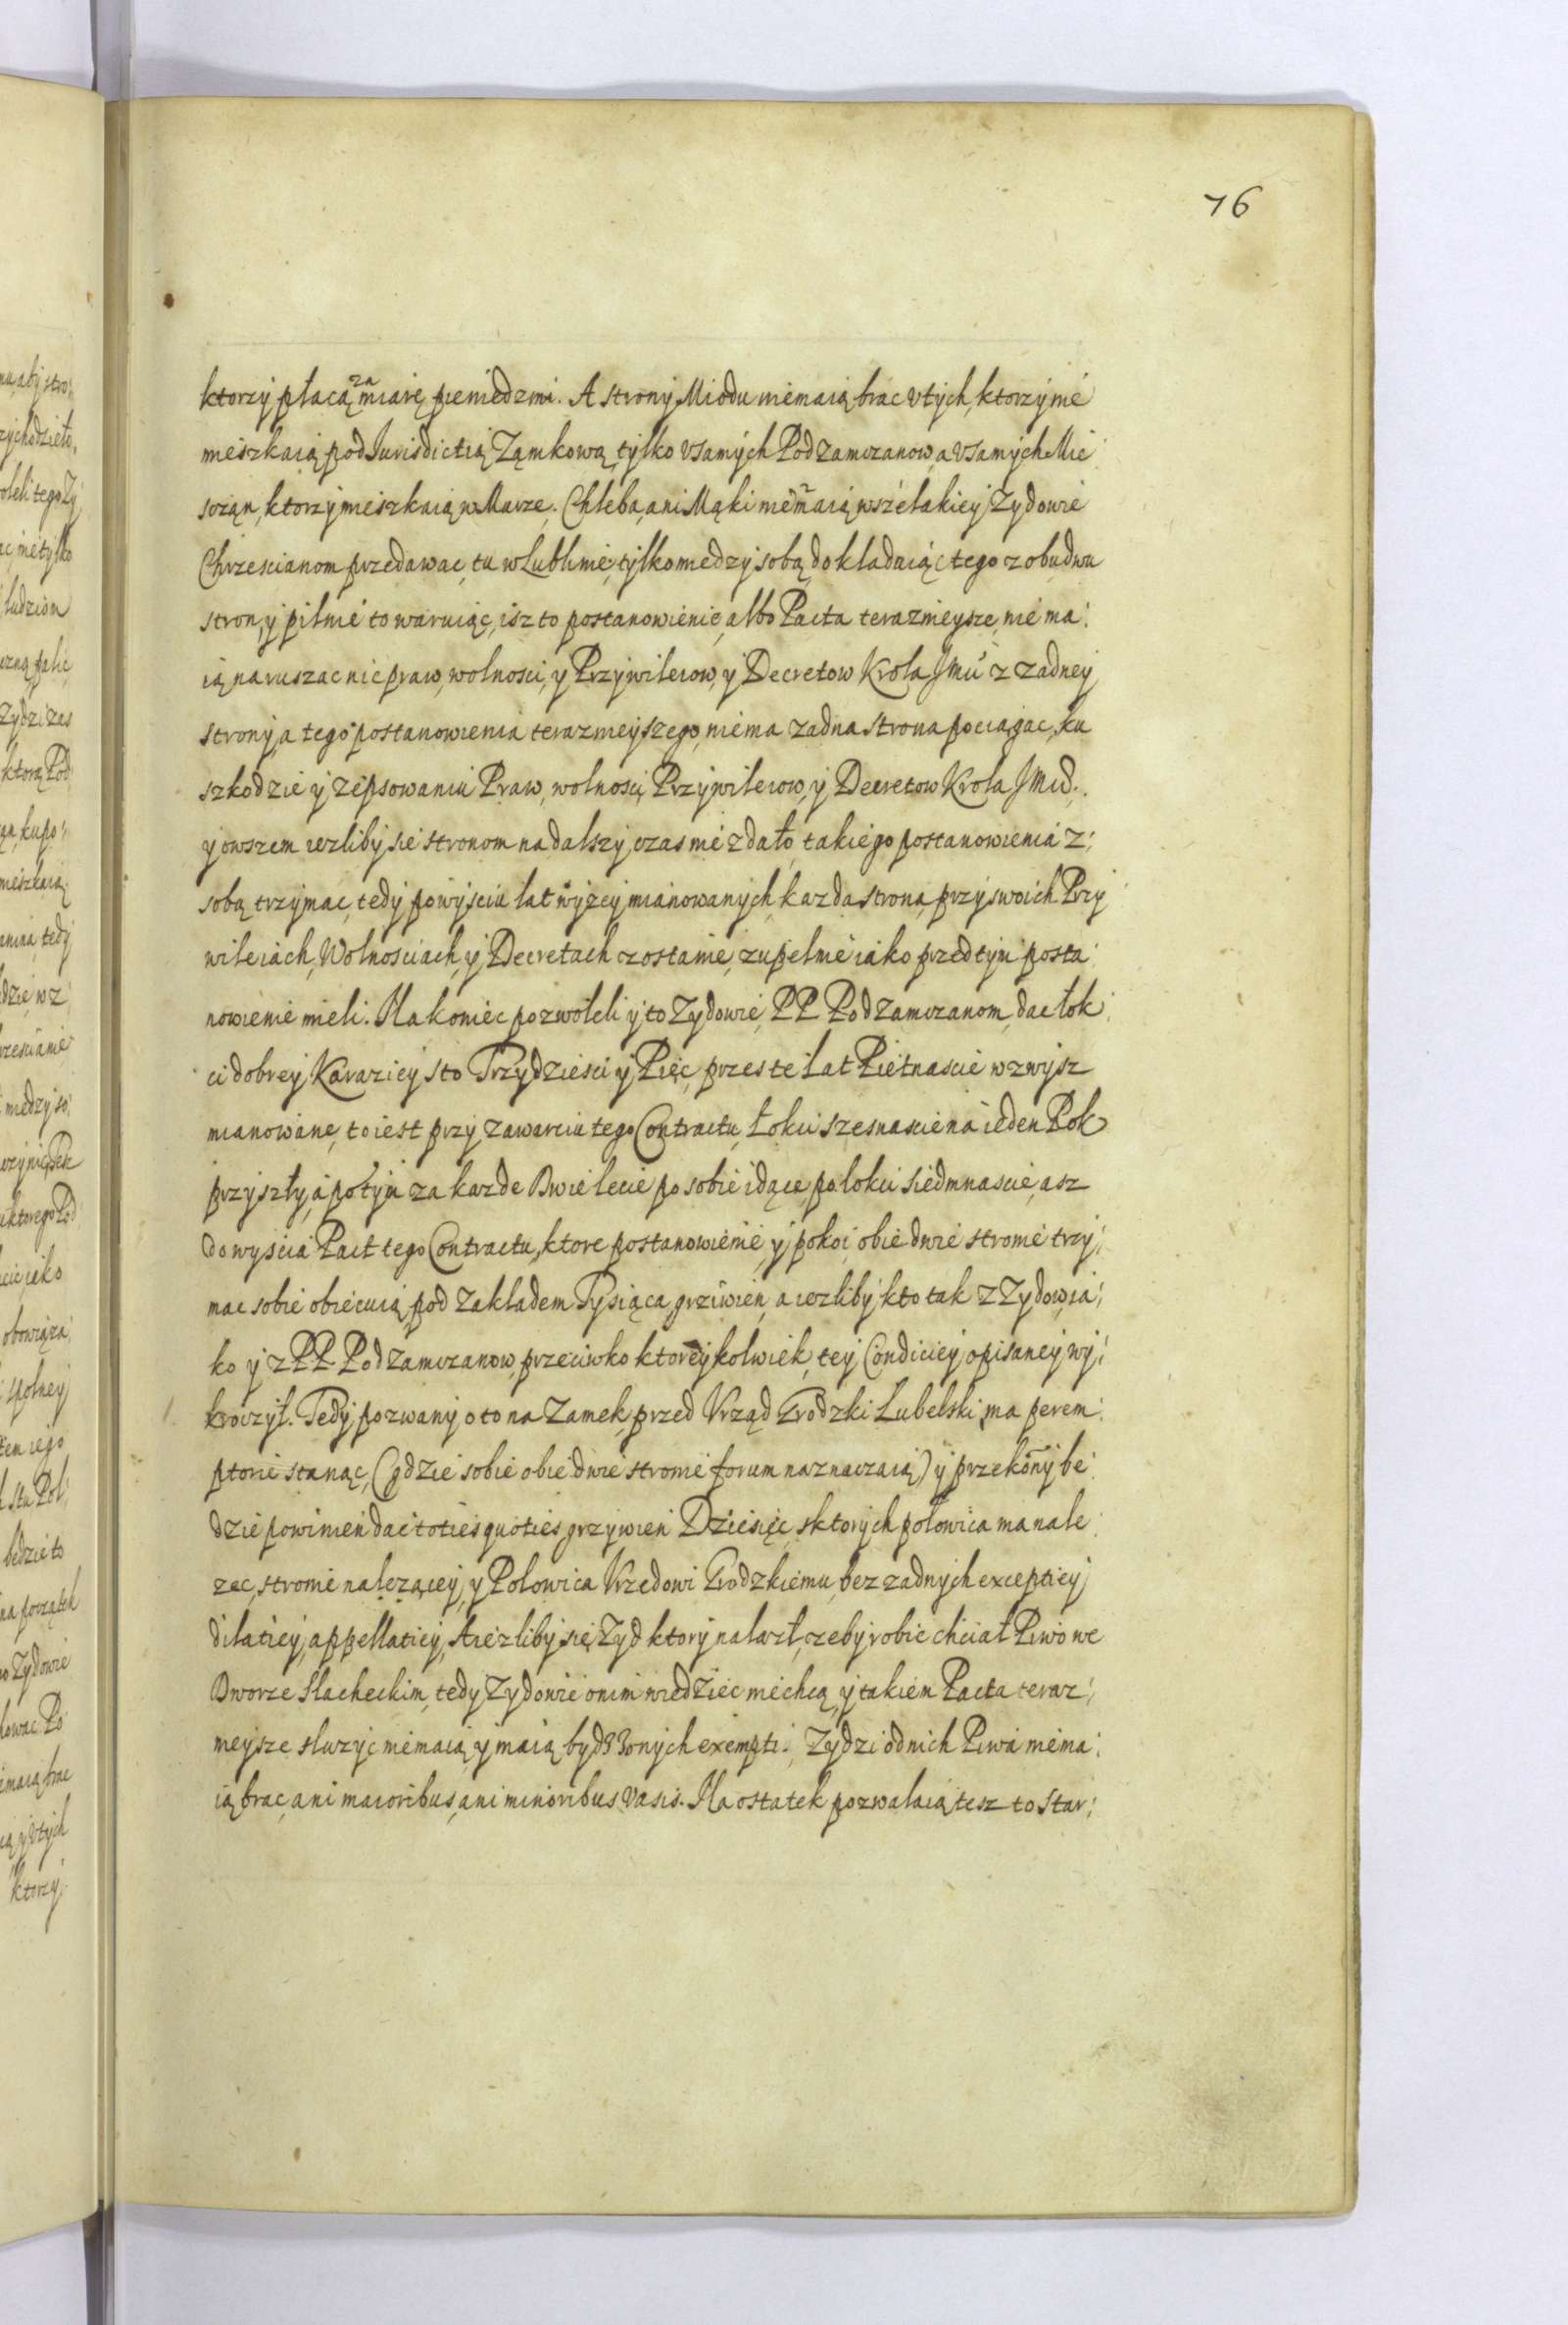 76
ktorzy płacą za miarę pieniedzmi. A strony Miodu niemaią brac Vtych, ktorzy nie
mieszkaią pod Iurisdictią Zamkową, tylko Vsamych Podzamczanow, a Vsamych Mie
sczan, ktorzy mieszkaią w Murze. Chleba, ani Mąki niemaią wszelakiey Zydowie
Chrzescianom przedawac, tu w Lublinie, tylko miedzy sobą, dokladaiąc tego z obudwu
stron, y pilnie to waruiąc, isz to postanowienie, albo Pacta terazniejsze, nie ma:
ią naruszac nic praw, wolnosci, y Przywileiow, y Decretow Krola JMći z zadney
strony, a tego postanowienia teraznieyszego, niema zadna strona pociągac, ku
szkodzie y zepsowaniu Praw, wolnosci, Przywileiow, y Decretow Krola JMći.
y owszem iezliby sie stronom na dalszy czas nie zdało, takiego postanowienia z:
sobą trzymac, tedy powysciu lat wyżey mianowanych, kazda strona, przy swoich Przy
wileiach, Wolnosciach, y Decretach zostanie, zupelnie iako przed tym posta:
nowienie mieli. Na koniec pozwolili y to Zydowie, PP Podzamczanom, dac łok:
ci dobrey Karaziey sto Trzydziesci y Pięc, przes te Lat Pietnascie wzwysz
mianowane, to iest przy zawarciu tego Contractu, Łokci szesnascie na ieden Rok
przyszły, a potym za kazde Dwie lecie po sobie idące, po łokci siedmnascie, asz
do wyscia Pact tego Contractu, ktore postanowienie, y pokoi, obie dwie stronie trzy:
mac sobie obiecuią, pod Zakladem Tysiąca grziwien, a iezliby kto tak z Zydow, ia:
ko y z PP Podzamczanow, przeciwko ktoreykolwiek, tey Condiciey opisaney wy:
kroczył. Tedy pozwany o to na Zamek, przed Vrząd Grodzki Lubelski, ma perem:
ptorie stanąc, (gdzie sobie obie dwie stronie forum naznaczaią) y przekony be:
dzie powinien dac toties quoties grzywien Dziesięc, sktorych połowica ma nale:
zec, stronie należącey, y Połowica Vrzedowi Grodzkiemu, bez zadnych exceptiey
dilatiey, appellatiey, A iezliby sie, Zyd ktory nalazł, czeby robic chciał Piwo we
Dworze Slacheckim, tedy Zydowie o nim wiedziec niechcą, y takiem Pacta teraz:
nieysze sluzyc niemaią, y maią bydz z onych exempti. Zydzi od nich Piwa niema:
ią brac, ani maioribus, ani minoribus vasis. Na ostatek pozwalaią tesz to Star: